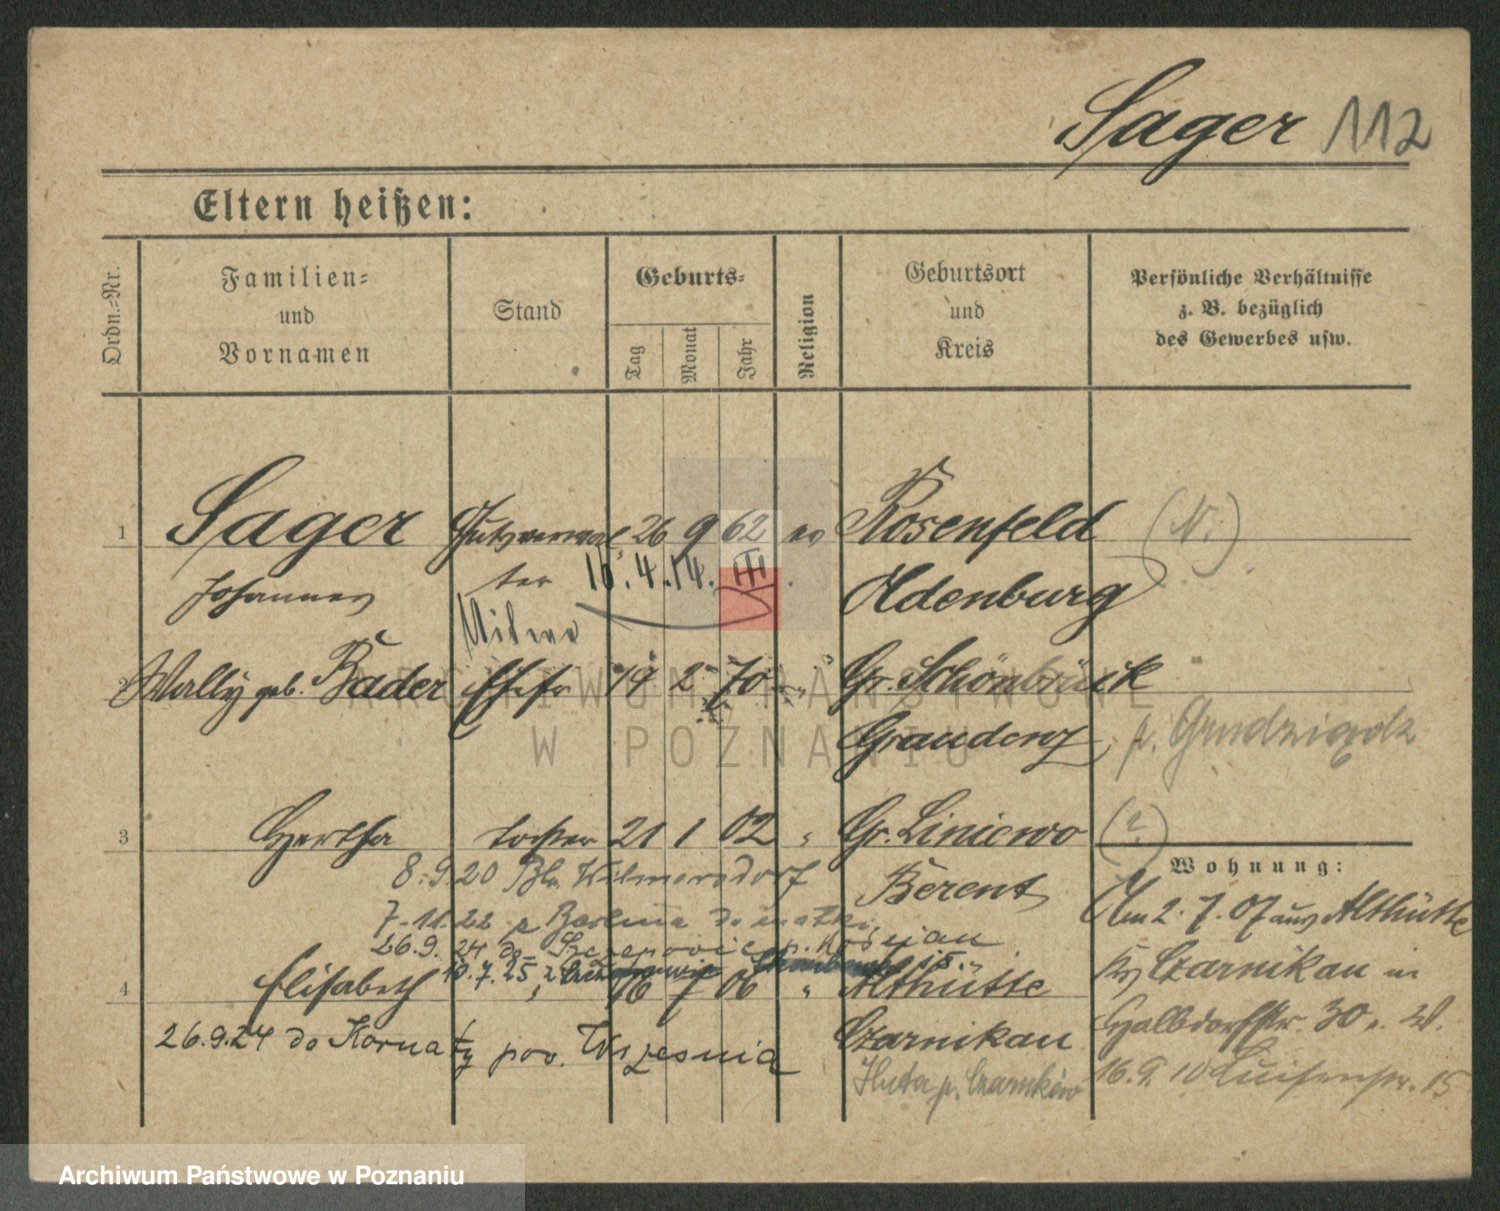 Sager 112
Eltern heißen:
Ordn.-Nr.
Familien-
und
Vornamen
Stand
Geburts-
Tag
Monat
Jahr
Religion
Geburtsort
und
Kreis
Persönliche Verhältnisse
z. B. bezüglich
des Gewerbes usw.
1 Sager Gutsverwal 26 9 62 ev Rosenfeld (N.)
Johannes ter 16.4.14. Oldenburg
Witwe
2 Wally geb. Bader Ehefr 19 2 70 " Gr. Schönbrück
Graudenz p. Grudziądz
3 Hertha Tochter 21 1 02 " Gr. Liniewo (?)
8.9.20 Bln. Wilmersdorf Berent
Wohnung:
7.11.22 z Berlina do matki
Am 2.7.07 aus Althütte
26.9.24 do
4 Elisabeth " 16 7 06 " Althütte
10.7.25 z
Kr Czarnikau in
26.9.24 do Kornaty pow. Września Czarnikau
Halbdorfstr. 30 v. W.
Huta p. Czarnków
16.9.10 Luisenstr. 15
ARCHIWUM PAŃSTWOWE
W POZNANIU
Archiwum Państwowe w Poznaniu